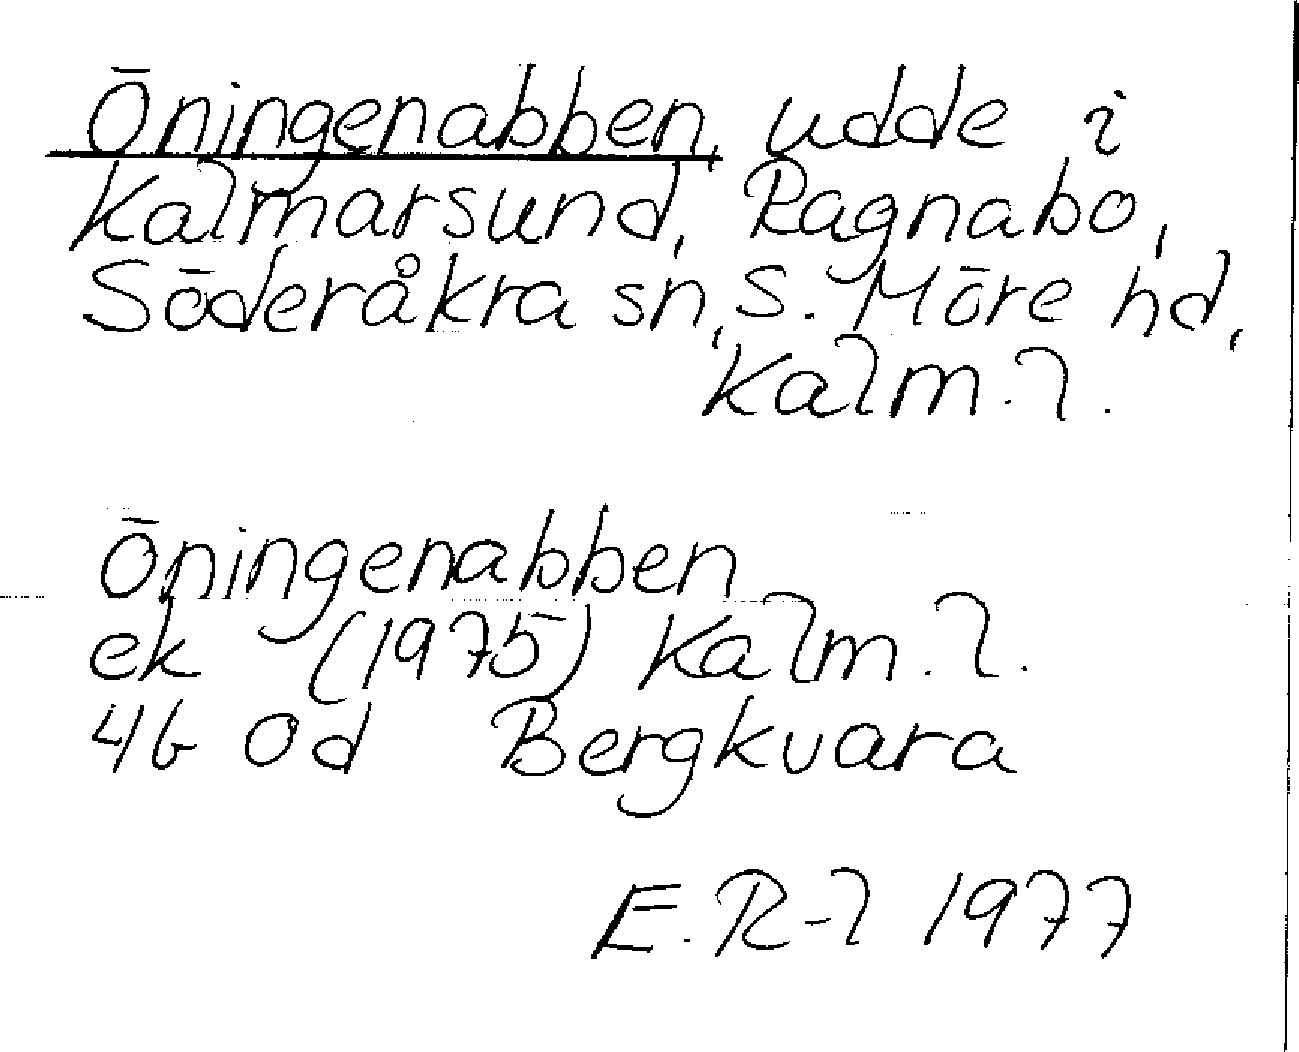 Öningenabben, udde i
Kalmarsund, Ragnabo,
Söderåkra sn, S. Möre hd,
Kalm. l.
Öningenabben
ek (1975) Kalm. l.
4G 0d Bergkvara
E. R-l 1977